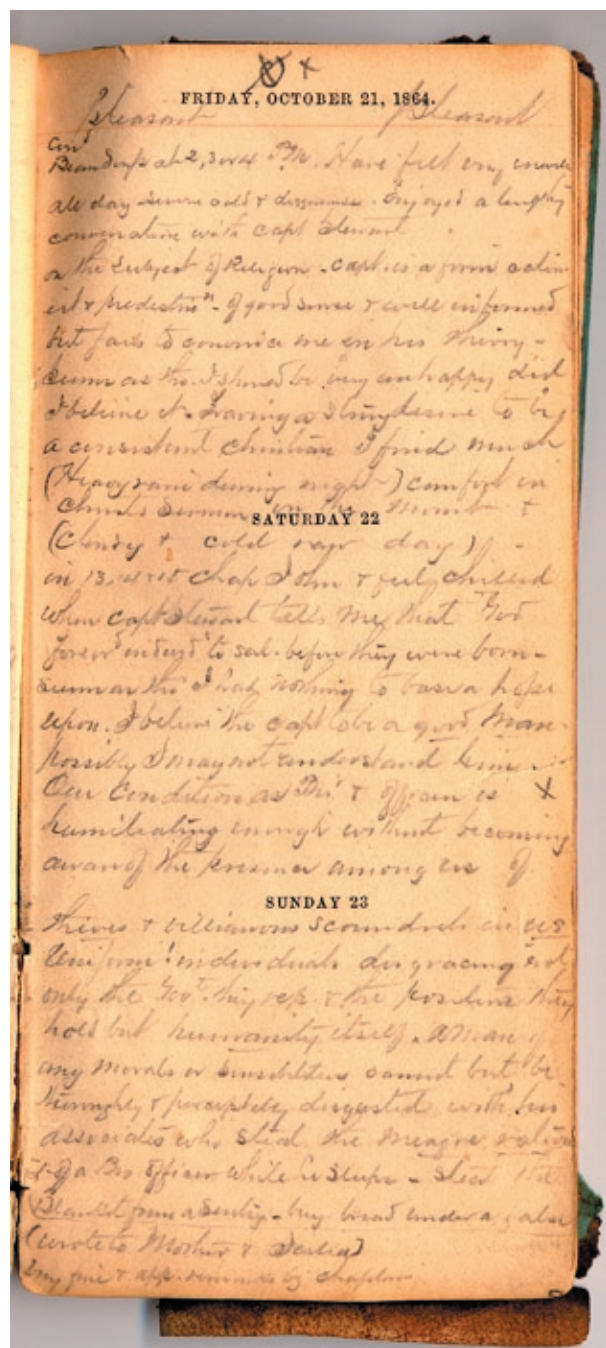 x
FRIDAY, OCTOBER 21, 1864.
Pleasant Pleasant
at 2, 3 or 4 P.M. Have felt very
all day severe cold & Enjoyed a lengthy
conversation with Capt Stewart
on the subject of Religion - Capt. is a firm
& of good sense & well informed
but fails to convince me in his theory -
Seems as tho. I should be very unhappy did
I believe it. Having a strong desire to be
a consistent Christian I find much
(Heavy rain during night -) comfort in
Christs Sermon on the Mount - &
SATURDAY 22
(Cloudy & cold raw day)
in 13, 14 & 15 Chap John & feel chilled
when Capt Stewart tells me that God
to sal. before they were born -
seems as tho' I had nothing to base a hope
upon. I believe the Capt to be a good Man
possibly I may not understand him -
Our Condition as & Officers is x
humiliating enough without becoming
aware of the presence among us of
SUNDAY 23
thieves & villianous scoundrels in US
Uniform! individuals disgracing not
only the Gov't. they rep. & the position they
hold but humanity itself. A Man of
any morals or sensibilities cannot but be
thoroughly & disgusted with his
associates who steal the meagre rations
of a Bro Officer while he sleeps - steal the
Blanket from a Sentry - buy bread under a false
(wrote to Mother & )
& app. by Chaplain